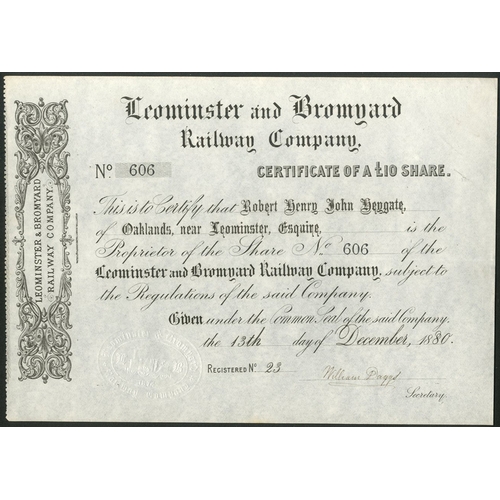 Leominster and Bromyard
Railway Company.
LEOMINSTER & BROMYARD
RAILWAY COMPANY.
No 606
CERTIFICATE OF A £10 SHARE.
This is to Certify that Robert Henry John Heygate,
of Oaklands, near Leominster, Esquire, is the
Proprietor of the Share No 606 of the
Leominster and Bromyard Railway Company, subject to
the Regulations of the said Company.
Given under the Common Seal of the said Company.
the 13th day of December, 1880.
REGISTERED No. 23
William
Secretary.